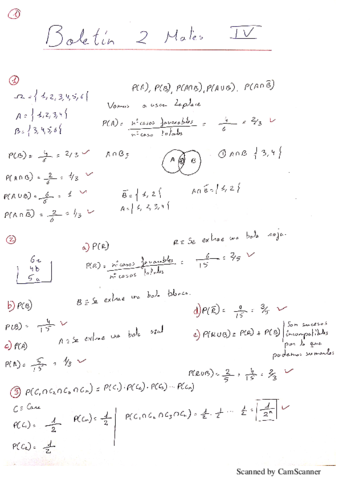 ①
Boletín 2 Mates IV
①
Ω = {1, 2, 3, 4, 5, 6}
A = {1, 2, 3, 4}
B = {3, 4, 5, 6}
P(A), P(B), P(A∩B), P(A∪B), P(A∩B̄)
Vamos a usar Laplace
P(A) = nº casos favorables / nº casos totales = 4/6 = 2/3 ✓
P(B) = 4/6 = 2/3 ✓
A∩B
A B
A∩B {3, 4}
P(A∩B) = 2/6 = 1/3 ✓
P(A∪B) = 6/6 = 1 ✓
P(A∩B̄) = 2/6 = 1/3 ✓
B̄ = {1, 2}
A = {1, 2, 3, 4}
A∩B̄ = {1, 2}
②
6
4
5
a) P(R)
R ≡ Se extrae una bola roja.
P(R) = nº casos favorables / nº casos totales = 6/15 = 2/5 ✓
b) P(B)
B ≡ Se extrae una bola blanca.
P(B) = 4/15 ✓
c) P(A)
A ≡ Se extrae una bola azul
P(A) = 5/15 = 1/3 ✓
d) P(R̄) = 9/15 = 3/5 ✓
e) P(R∪B) = P(R) + P(B)
Son sucesos incompatibles por lo que podemos sumarlos
P(R∪B) = 2/5 + 4/15 = 2/3 ✓
③ P(C₁∩C₂∩C₃∩Cₙ) = P(C₁)·P(C₂)·P(C₃)···P(Cₙ)
C = Cara
P(C₁) = 1/2
P(Cₙ) = 1/2
P(C₁∩C₂∩C₃∩Cₙ) = 1/2 · 1/2 ··· 1/2 = 1/2ⁿ ✓
P(C₂) = 1/2
Scanned by CamScanner